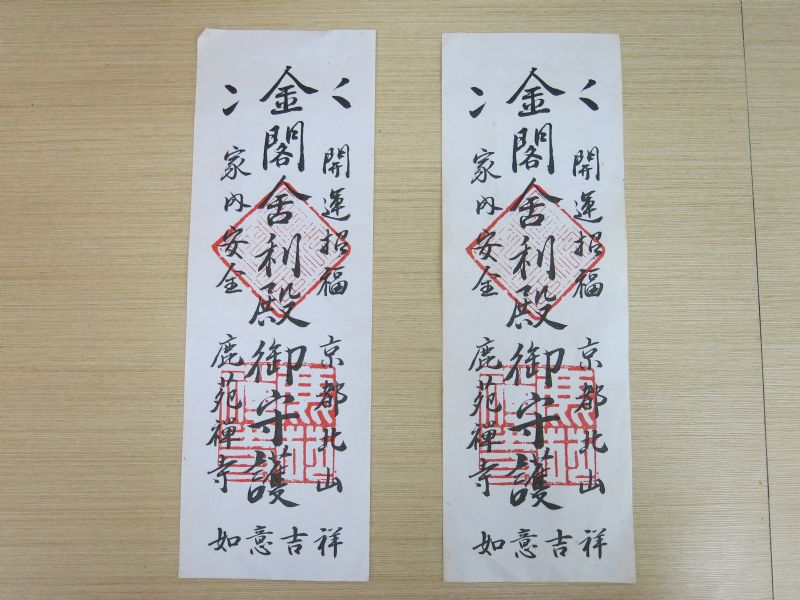 開運招福
京都北山
金閣舍利殿御守護
家内安全
鹿苑禅寺
如意吉祥
開運招福
京都北山
金閣舍利殿御守護
家内安全
鹿苑禅寺
如意吉祥